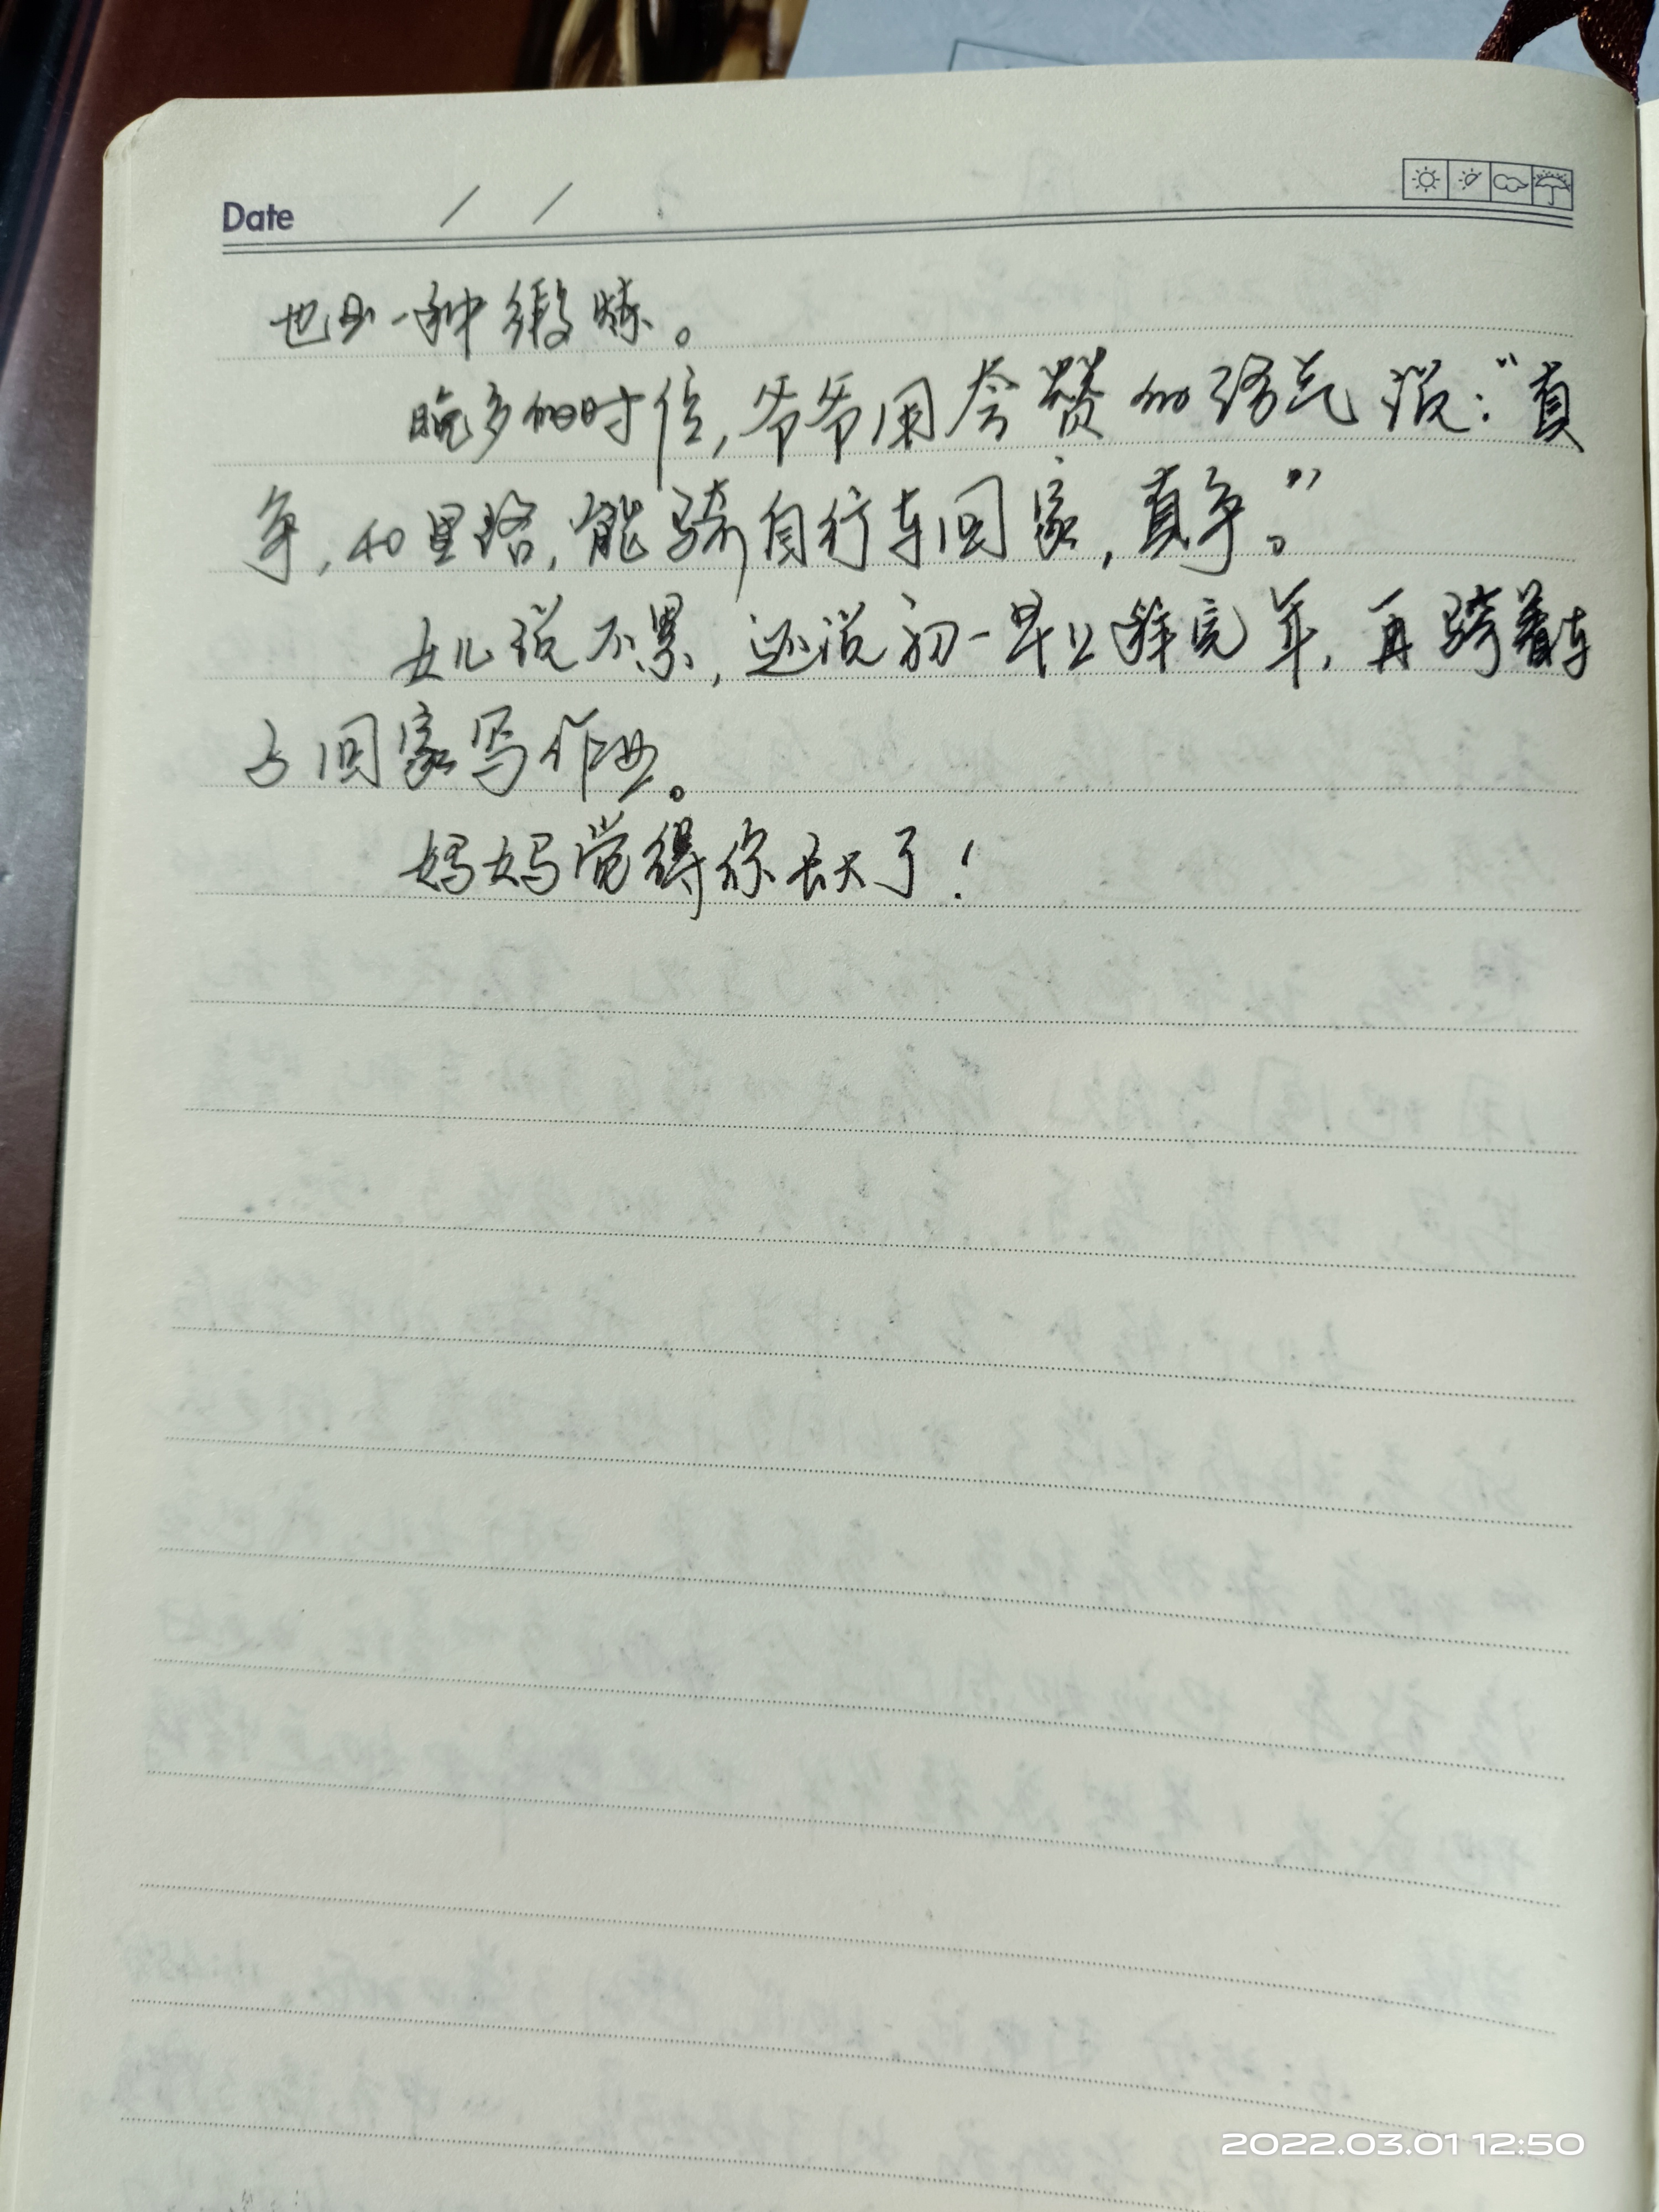 Date / /
也是一种锻炼。
晚乡的时候,爷爷用夸赞的语气说:“真
争,40里路,能骑自行车回家,真争。”
女儿说不累,还说初一早上拜完年,再骑着车
子回家写作业。
妈妈觉得你长大了!
2022.03.01 12:50